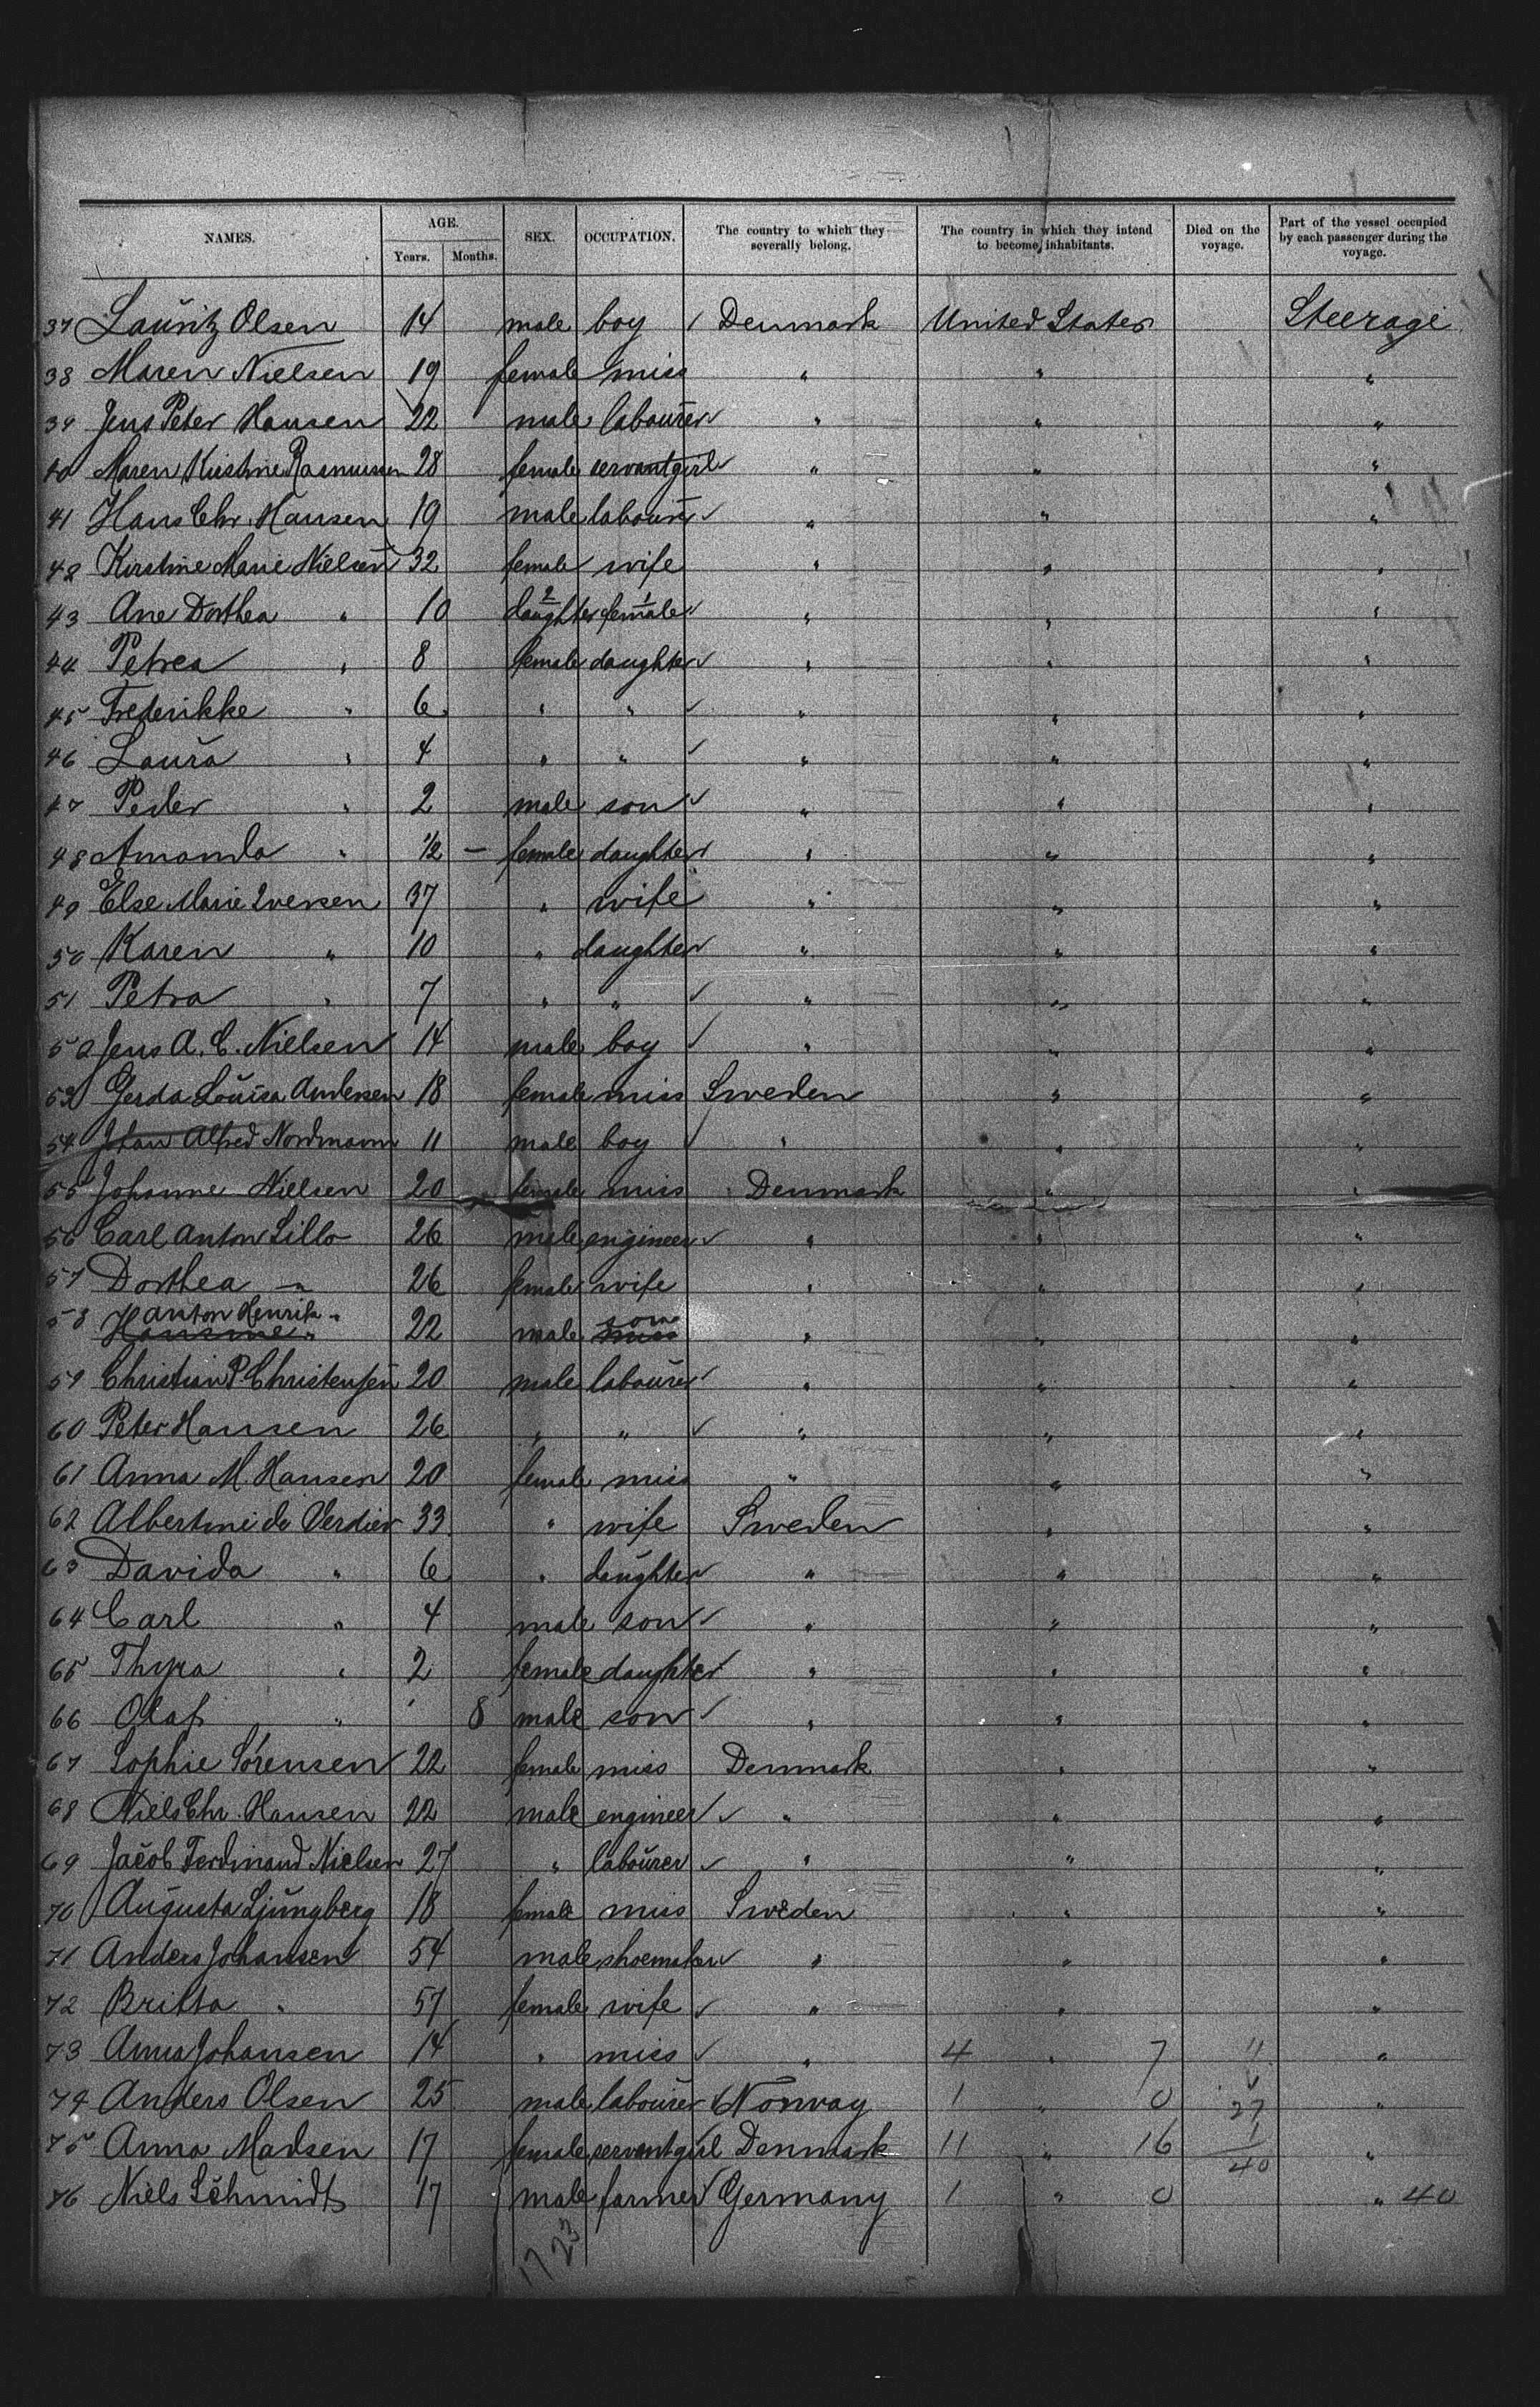 NAMES. AGE. SEX. OCCUPATION. The country to which they severally belong. The country in which they intend to become inhabitants. Died on the voyage. Part of the vessel occupied by each passenger during the voyage.
Years. Months.
37 Lauritz Olsen 14 male boy Denmark United States Steerage
38 Maren Nielsen 19 female miss " " "
39 Jens Peter Hansen 22 male labourer " " "
40 Maren Kirstine Rasmussen 28 female servantgirl " " "
41 Hans Chr. Hansen 19 male labourer " " "
42 Kirstine Marie Nielsen 32 female wife " " "
43 Ane Dorthea " 10 daughter 2 female 1 " " "
44 Petrea " 8 female daughter " " "
45 Frederikke " 6 " " " " "
46 Laura " 4 " " " " "
47 Peder " 2 male son " " "
48 Amanda " 1/2 – female daughter " " "
49 Else Marie Iversen 37 " wife " " "
50 Karen " 10 " daughter " " "
51 Petra " 7 " " " " "
52 Jens A. C. Nielsen 14 male boy " " "
53 Gerda Louisa Andersen 18 female miss Sweden " "
54 Johan Alfred Nordmann 11 male boy " " "
55 Johanne Nielsen 20 female miss Denmark " "
56 Carl Anton Lillo 26 male engineer " " "
57 Dorthea " 26 female wife " " "
58 Anton Henrik " 22 male son " " "
59 Christian P. Christensen 20 male labourer " " "
60 Peter Hansen 26 " " " " "
61 Anna M. Hansen 20 female miss " " "
62 Albertine de Verdier 33 " wife Sweden " "
63 Davida " 6 " daughter " " "
64 Carl " 4 male son " " "
65 Thyra " 2 female daughter " " "
66 Olaf " 8 male son " " "
67 Sophie Sørensen 22 female miss Denmark " "
68 Niels Chr. Hansen 22 male engineer " " "
69 Jacob Ferdinand Nielsen 27 " labourer " " "
70 Augusta Ljungberg 18 female miss Sweden " "
71 Anders Johansen 54 male shoemaker " " "
72 Britta " 57 female wife " " "
73 Anna Johansen 14 " miss " 4 " 7 11 "
74 Anders Olsen 25 male labourer Norway 1 " 0 27 "
75 Anna Madsen 17 female servantgirl Denmark 11 " 16 1 40 "
76 Niels Schmidt 17 male farmer Germany 1 " 0 " 40
17 23